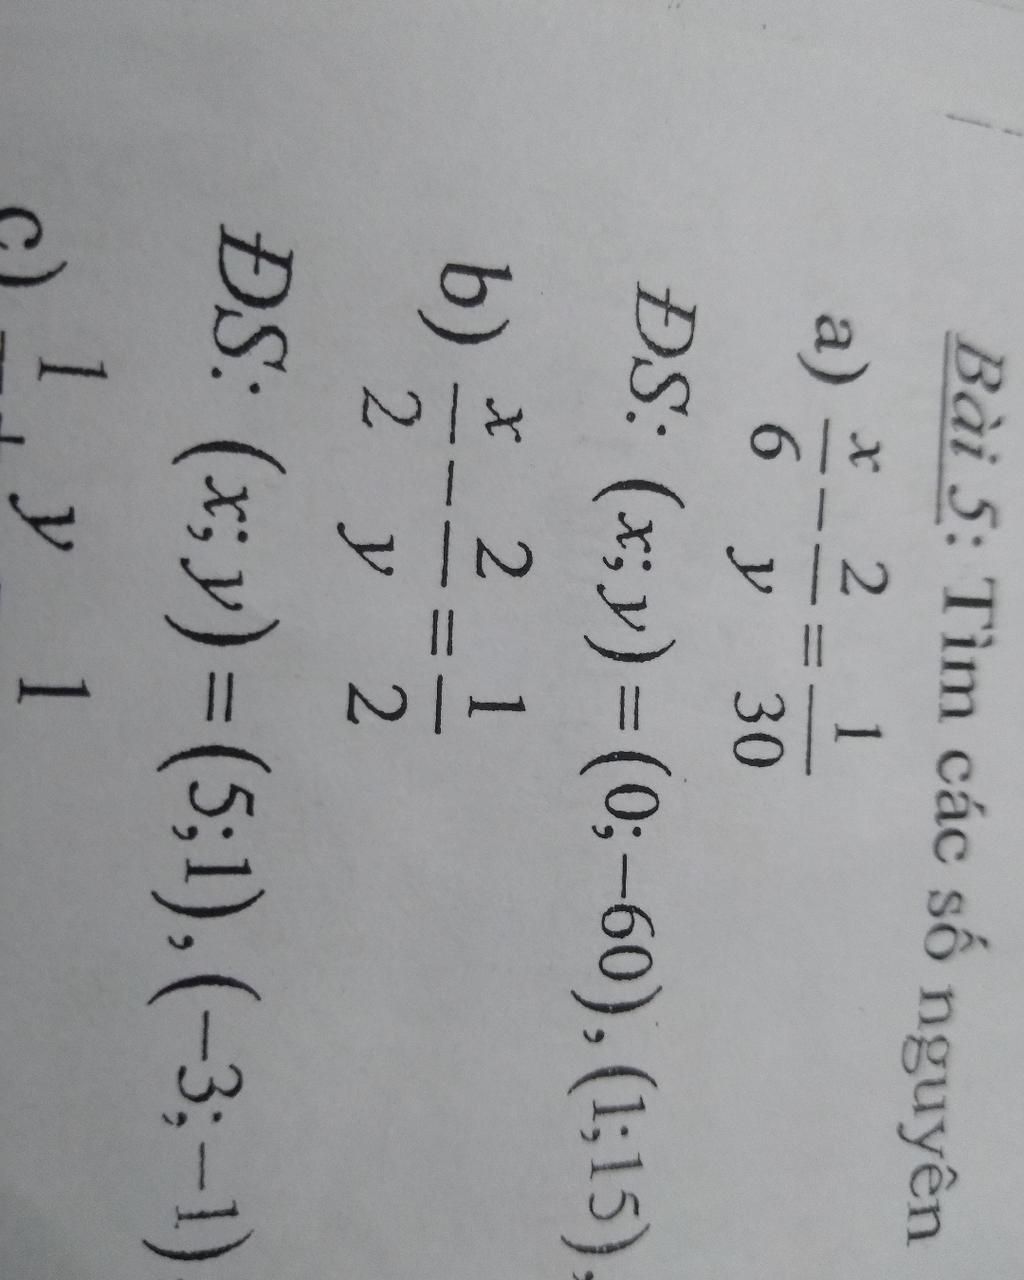 Bài 5: Tìm các số nguyên
a) x/6 - 2/y = 1/30
ĐS: (x; y) = (0; -60), (1; 15),
b) x/2 - 2/y = 1/2
ĐS: (x; y) = (5; 1), (-3; -1)
c) 1 y 1